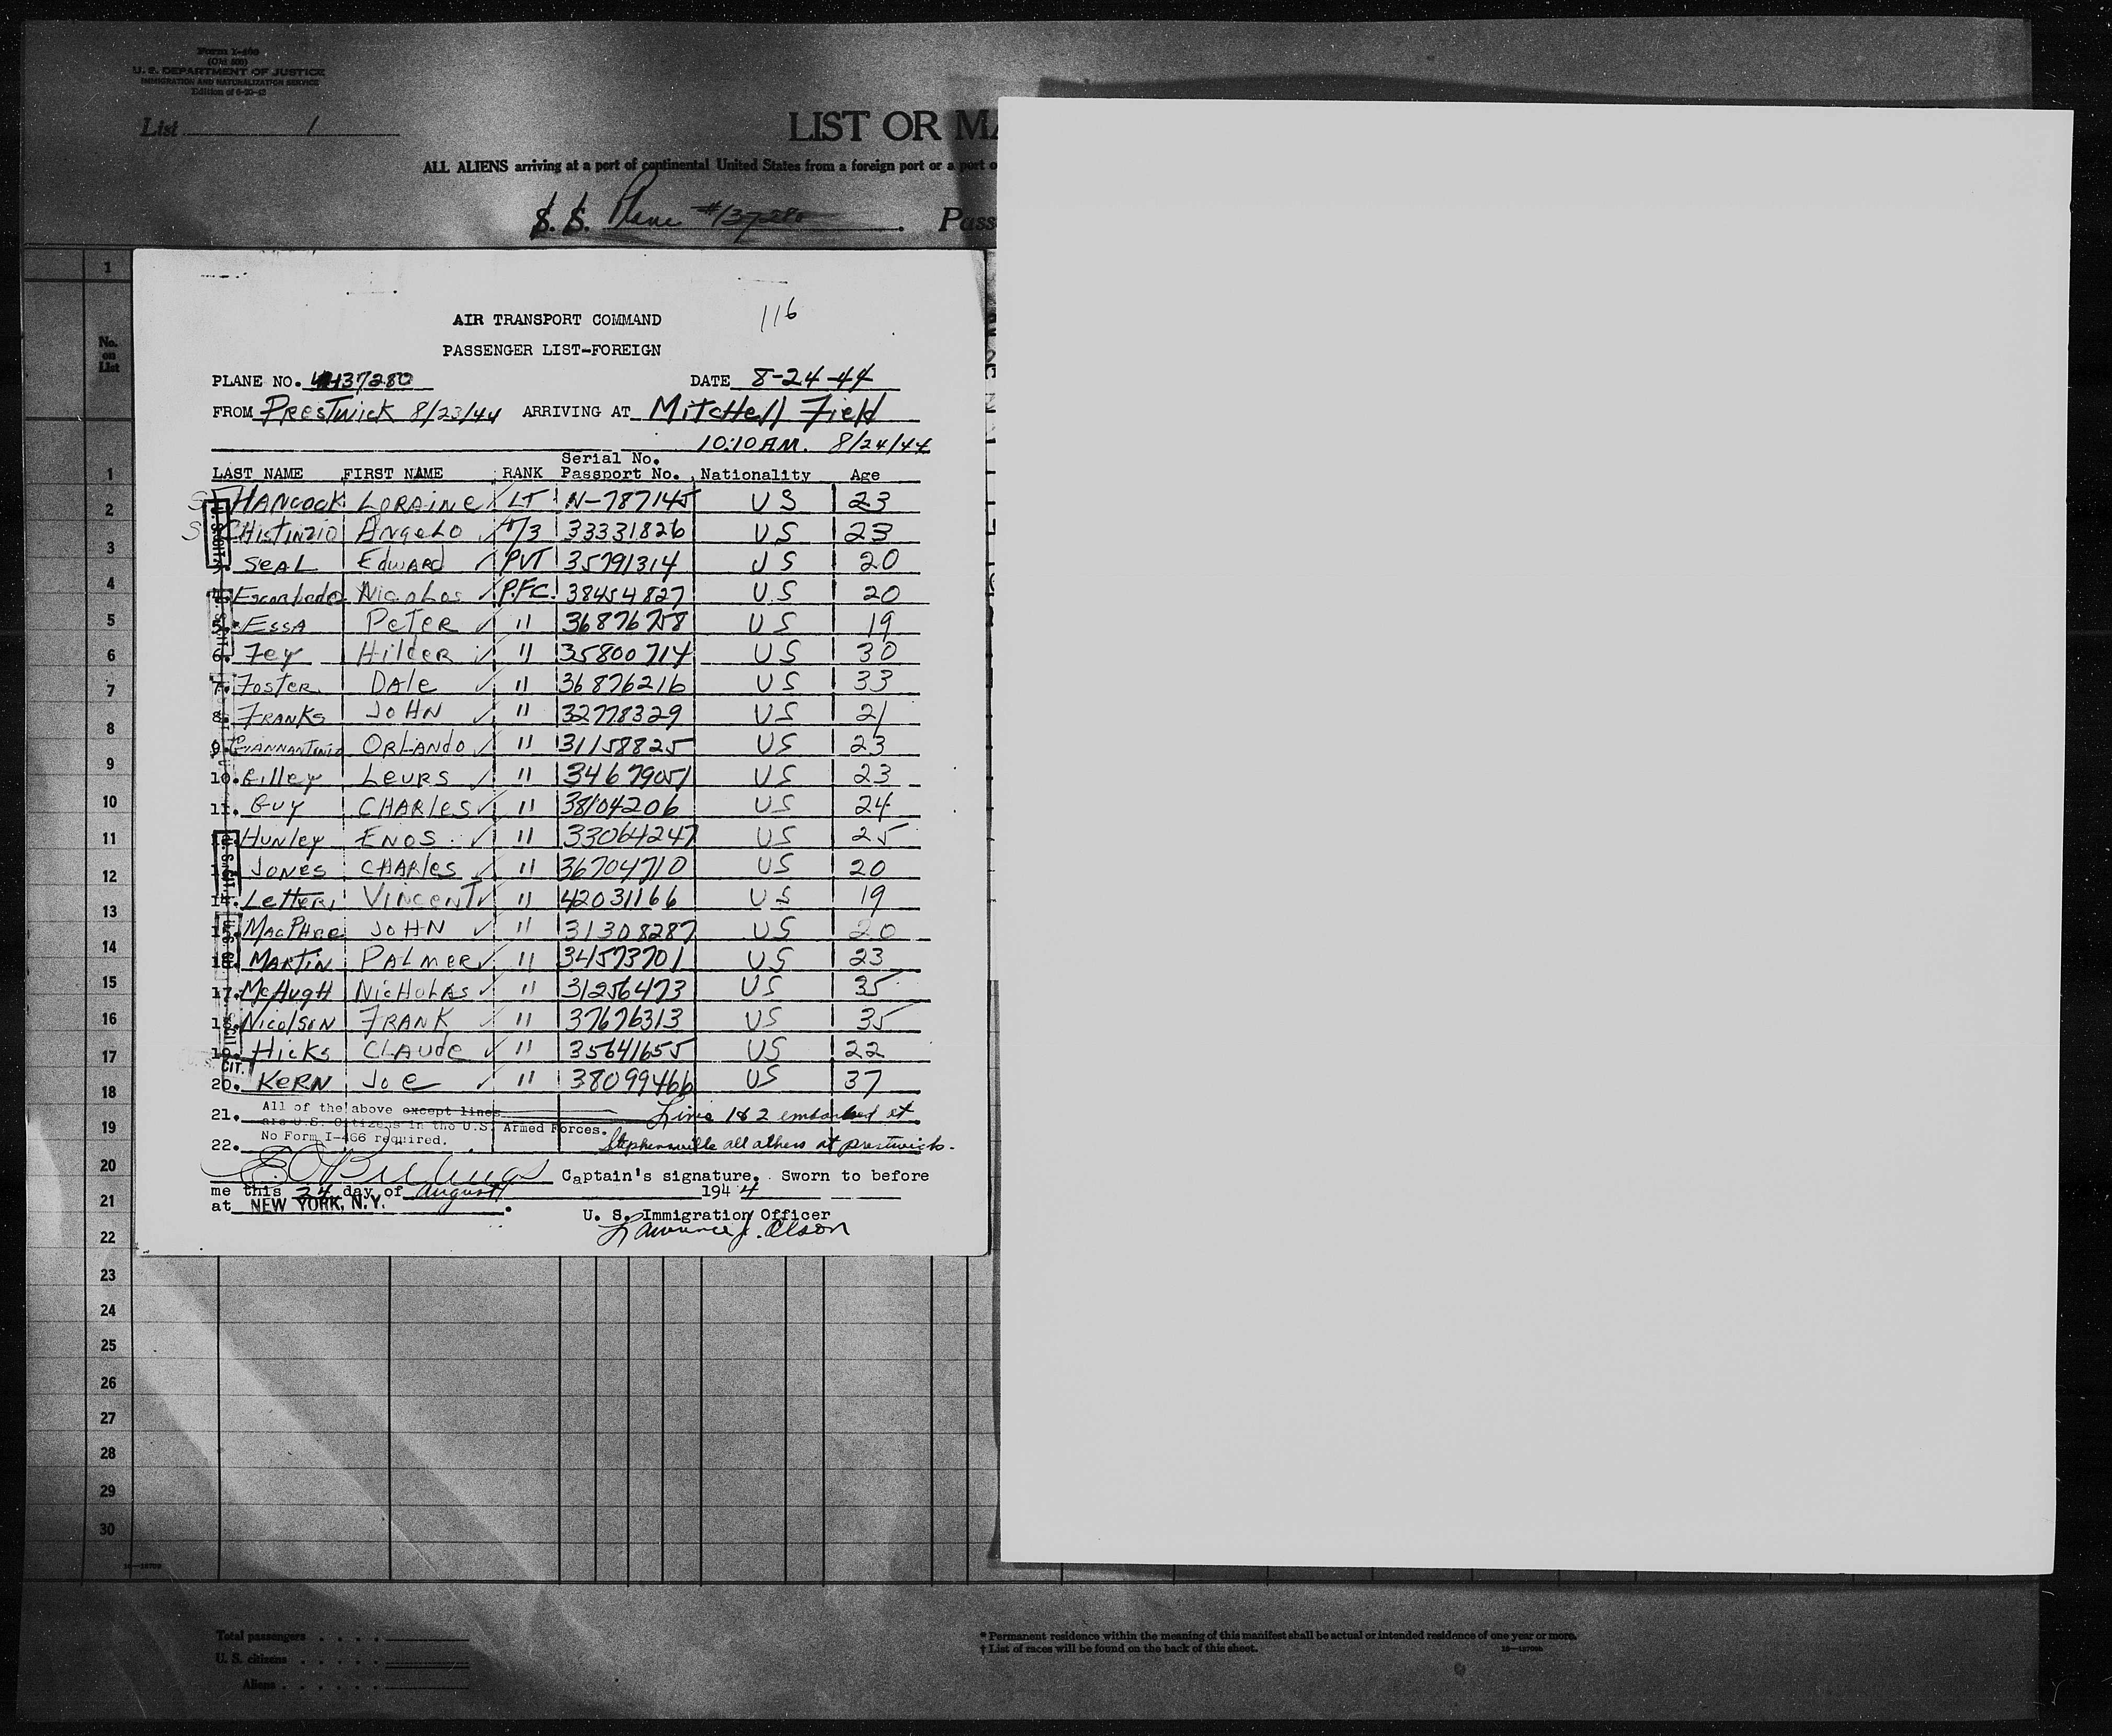 Form I-400
(Old 500)
U. S. DEPARTMENT OF JUSTICE
IMMIGRATION AND NATURALIZATION SERVICE
Edition of 6-20-42
List 1
LIST OR MA
ALL ALIENS arriving at a port of continental United States from a foreign port or a port o
S. S. Plane #137280 Pass
116
AIR TRANSPORT COMMAND
PASSENGER LIST-FOREIGN
PLANE NO. 137280 DATE 8-24-44
FROM PRESTWICK 8/23/44 ARRIVING AT Mitchell Field
10:10 AM. 8/24/44
LAST NAME FIRST NAME RANK Serial No. Passport No. Nationality Age
HANCOCK LORAINE LT N-787145 US 23
CHISTINZIO ANGELO T/3 33331826 US 23
3. SEAL EDWARD PVT 35791314 US 20
4. Escobedo Nicolas P.F.C. 38454827 US 20
5. ESSA PETER " 36876758 US 19
6. Fey Hilder " 35800714 US 30
7. Foster DALE " 36876216 US 33
8. FRANKS JOHN " 32778329 US 21
9. GIANNANTONIO ORLANDO " 31158825 US 23
10. Gilley LEURS " 34679051 US 23
11. GUY CHARLES " 38104206 US 24
12. HUNLEY ENOS " 33064247 US 25
13. JONES CHARLES " 36704710 US 20
14. LETTERI VINCENT " 42031166 US 19
15. MACPHEE JOHN " 31308287 US 20
16. MARTIN PALMER " 34573701 US 23
17. McHUGH NICHOLAS " 31256473 US 35
18. NICOLSON FRANK " 37676313 US 35
19. HICKS CLAUDE " 35641655 US 22
CIT.
20. KERN JOE " 38099466 US 37
21. All of the above except lines Line 1 & 2 embarked at
are U.S. Citizens in the U.S. Armed Forces.
22. No Form I-466 required. Stephensville all others at prestwick.
Captain's signature. Sworn to before
me this 24 day of August 1944
at NEW YORK, N.Y.
U. S. Immigration Officer
Lawrence J. Olson
No. on List
1
2
3
4
5
6
7
8
9
10
11
12
13
14
15
16
17
18
19
20
21
22
23
24
25
26
27
28
29
30
Total passengers
U. S. citizens
Aliens
* Permanent residence within the meaning of this manifest shall be actual or intended residence of one year or more.
† List of races will be found on the back of this sheet.